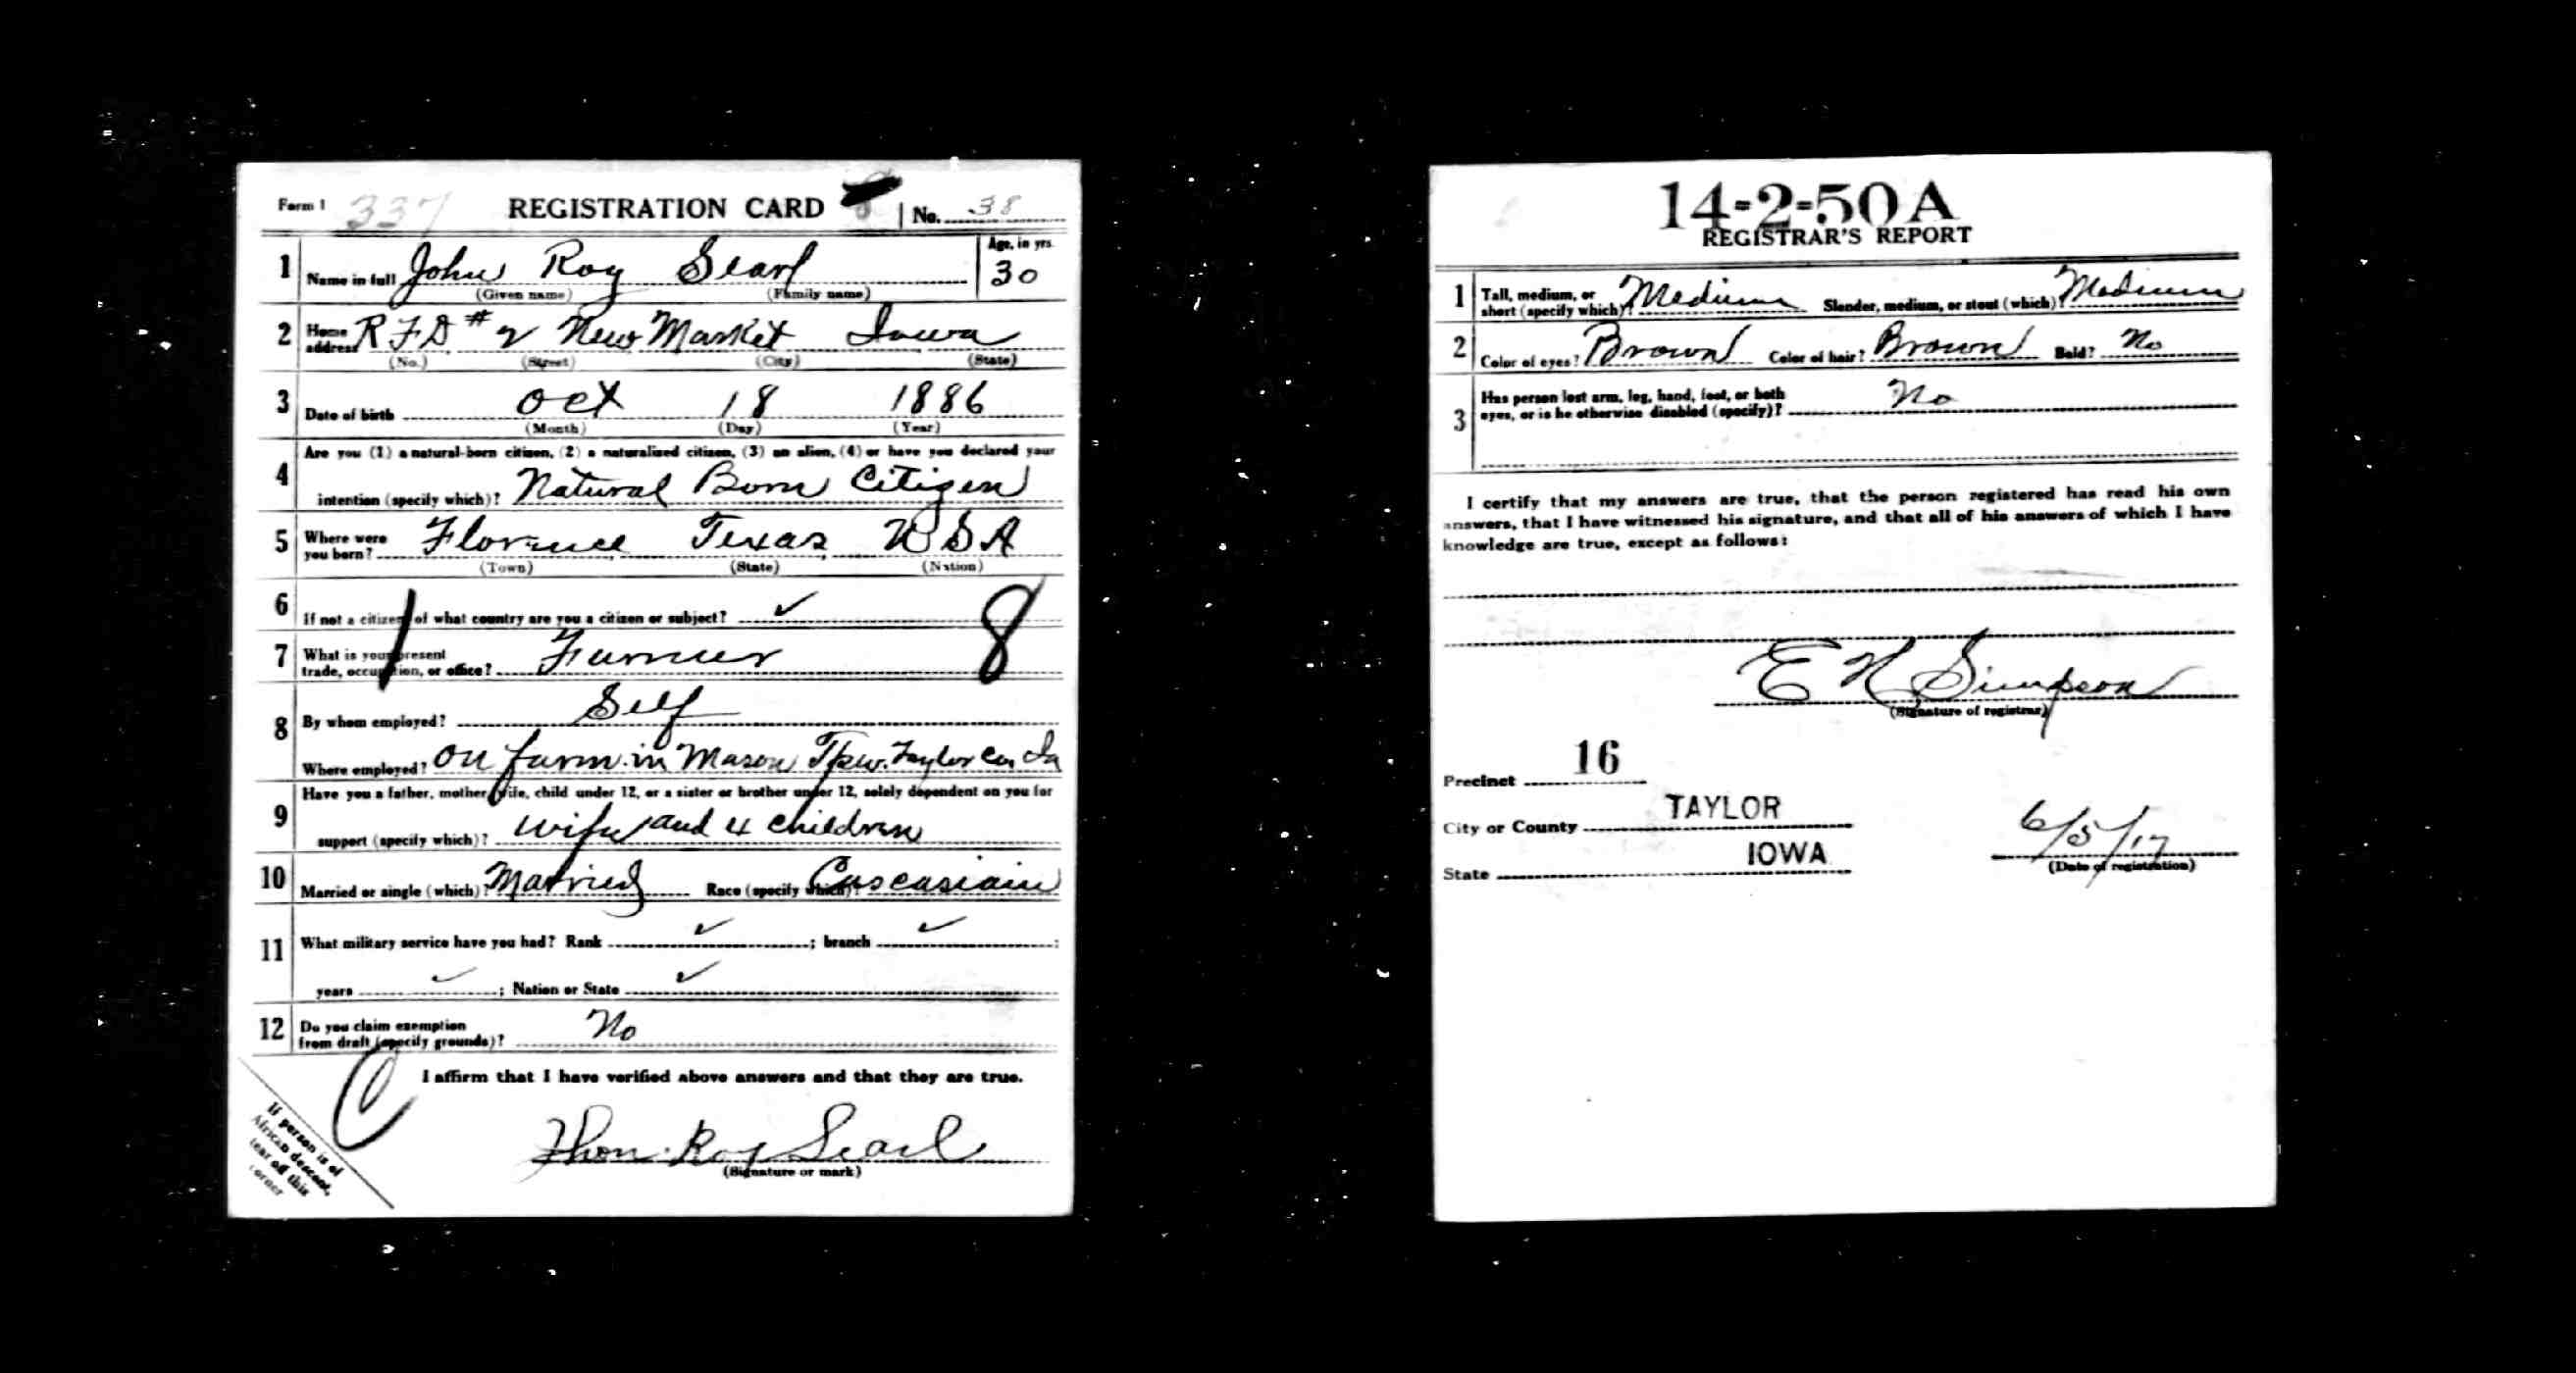 Form 1 337 REGISTRATION CARD No. 38
1 Name in full John Roy Searl Age, in yrs. 30
(Given name) (Family name)
2 Home address R F D # 2 New Market Iowa
(No.) (Street) (City) (State)
3 Date of birth Oct 18 1886
(Month) (Day) (Year)
4 Are you (1) a natural-born citizen, (2) a naturalized citizen, (3) an alien, (4) or have you declared your
intention (specify which)? Natural Born Citizen
5 Where were you born? Florence Texas U S A
(Town) (State) (Nation)
6 If not a citizen of what country are you a citizen or subject? ✓
7 What is your present
trade, occupation, or office? Farmer 8
8 By whom employed? Self
Where employed? On farm in Mason Tpw. Taylor Co, Ia
9 Have you a father, mother, wife, child under 12, or a sister or brother under 12, solely dependent on you for
support (specify which)? Wife and 4 children
10 Married or single (which)? Married Race (specify which)? Cascasiain
11 What military service have you had? Rank ✓ ; branch ✓ ;
years ✓ ; Nation or State ✓
12 Do you claim exemption
from draft (specify grounds)? No
I affirm that I have verified above answers and that they are true.
Jhon Roy Searl
(Signature or mark)
If person is of
African descent,
tear off this
corner
14-2-50 A
REGISTRAR'S REPORT
1 Tall, medium, or
short (specify which)? Medium Slender, medium, or stout (which)? Medium
2 Color of eyes? Brown Color of hair? Brown Bald? No
3 Has person lost arm, leg, hand, foot, or both
eyes, or is he otherwise disabled (specify)? No
I certify that my answers are true, that the person registered has read his own
answers, that I have witnessed his signature, and that all of his answers of which I have
knowledge are true, except as follows:
E N Simpson
(Signature of registrar)
Precinct 16
City or County TAYLOR
State IOWA
6/5/17
(Date of registration)